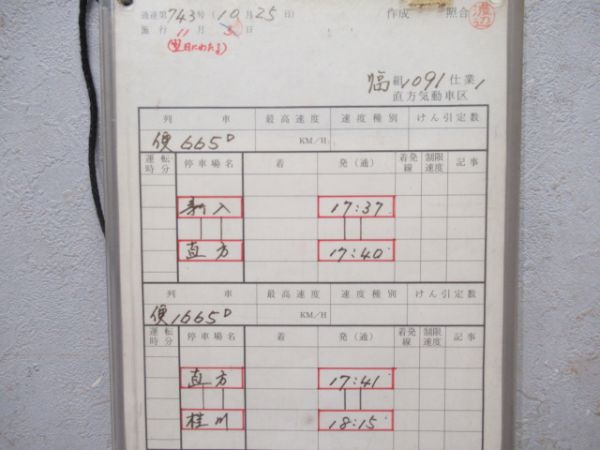 達第743号(10月25日) 作成 照合 渡辺
施行 11月 日
(翌日にわたる)
組1091仕業1
直方気動車区
列車 最高速度 速度種別 けん引定数
便665D KM/H
運転時分 停車場名 着 発(通) 着発線 制限速度 記事
新入 17:37
直方 17:40
列車 最高速度 速度種別 けん引定数
便1665D KM/H
運転時分 停車場名 着 発(通) 着発線 制限速度 記事
直方 17:41
桂川 18:15